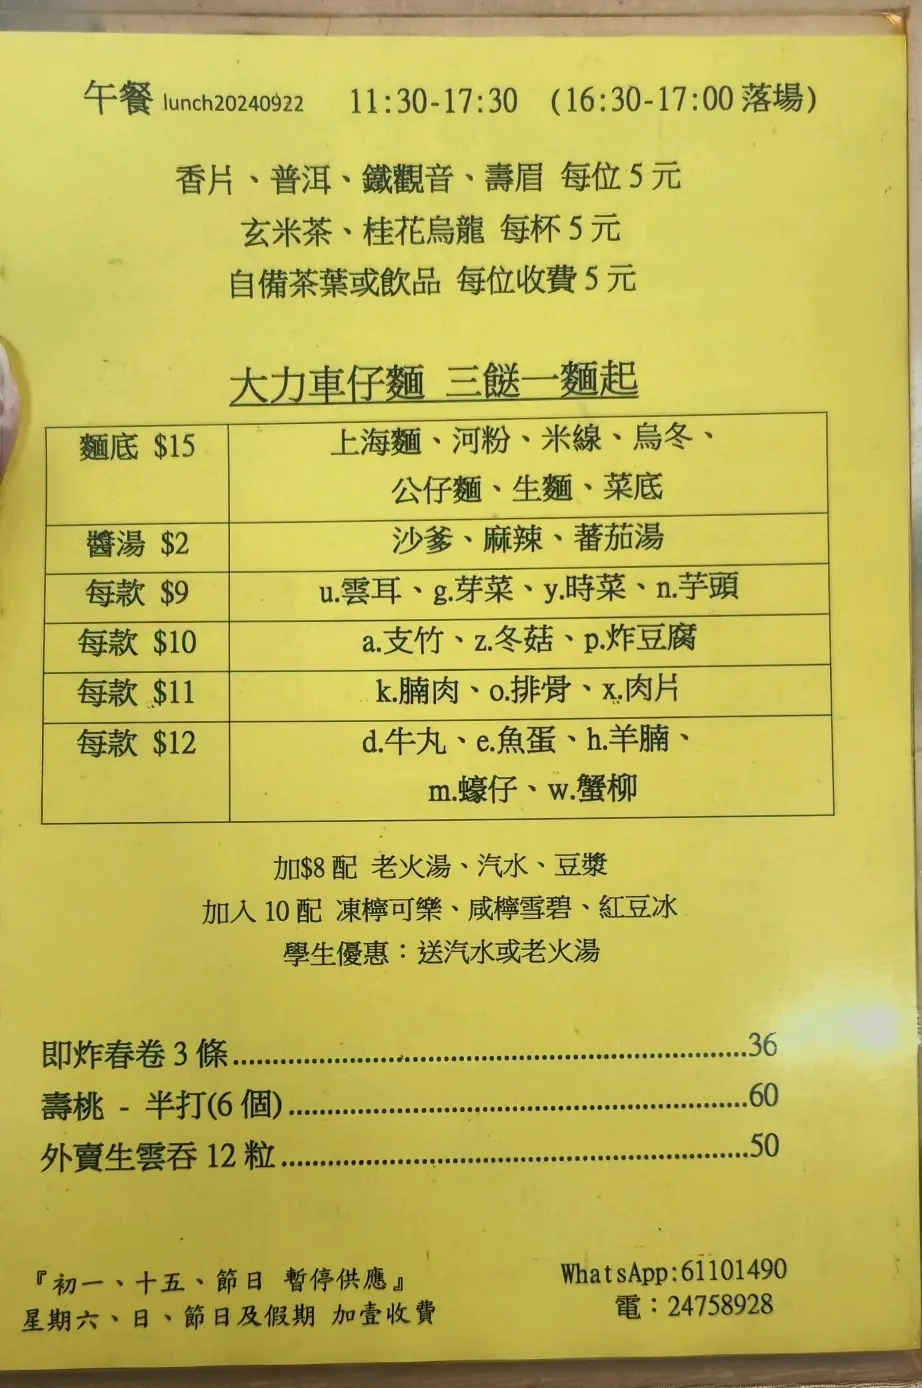 午餐 lunch20240922 11:30-17:30 (16:30-17:00 落場)
香片、普洱、鐵觀音、壽眉 每位 5 元
玄米茶、桂花烏龍 每杯 5 元
自備茶葉或飲品 每位收費 5 元
大力車仔麵 三餸一麵起
麵底 $15 上海麵、河粉、米線、烏冬、
公仔麵、生麵、菜底
醬湯 $2 沙爹、麻辣、蕃茄湯
每款 $9 u.雲耳、g.芽菜、y.時菜、n.芋頭
每款 $10 a.支竹、z.冬菇、p.炸豆腐
每款 $11 k.腩肉、o.排骨、x.肉片
每款 $12 d.牛丸、e.魚蛋、h.羊腩、
m.蠔仔、w.蟹柳
加$8 配 老火湯、汽水、豆漿
加入 10 配 凍檸可樂、咸檸雪碧、紅豆冰
學生優惠：送汽水或老火湯
即炸春卷 3 條................................................................36
壽桃 - 半打(6 個).........................................................60
外賣生雲吞 12 粒..........................................................50
『初一、十五、節日 暫停供應』
星期六、日、節日及假期 加壹收費
WhatsApp:61101490
電：24758928